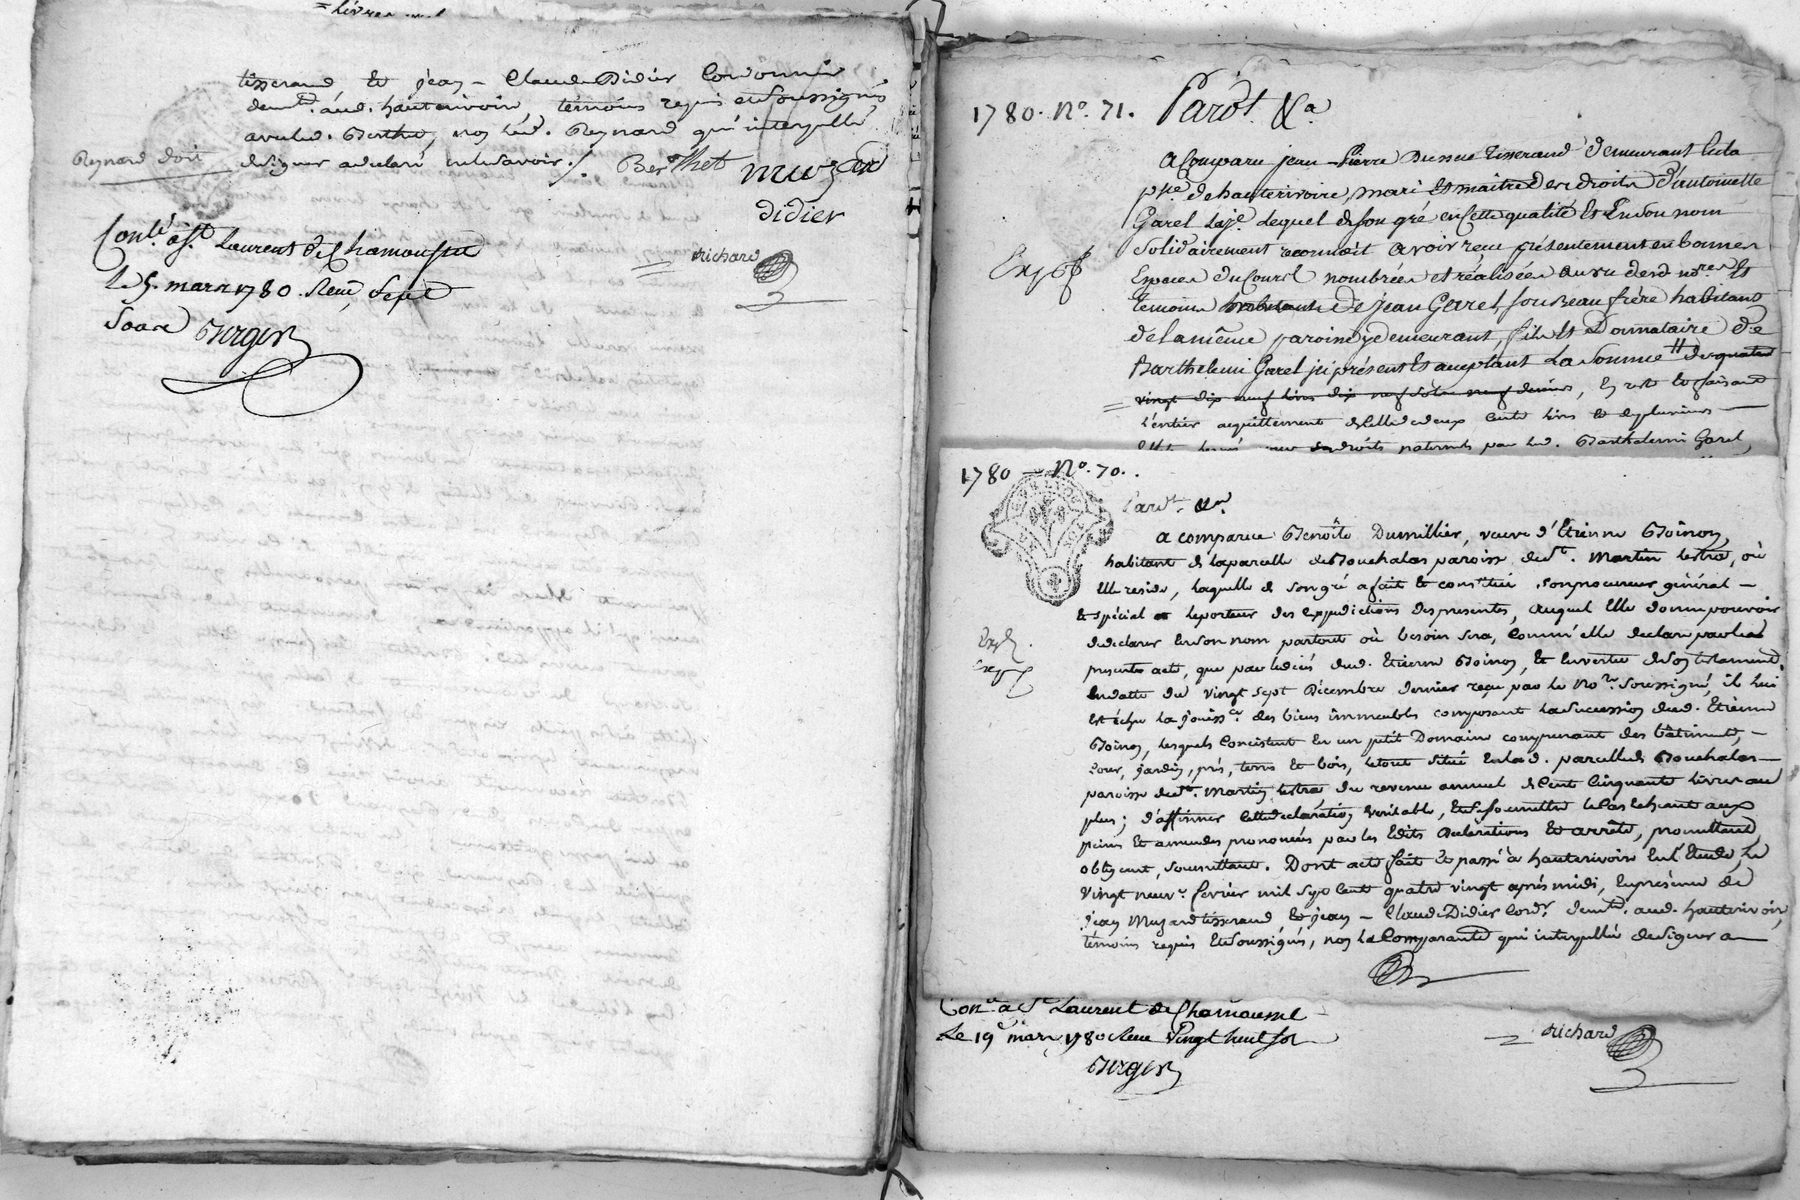 = Livres
tisserand et jean - Claude Didier Cordonnier
demt. aud. hauterivoire, temoins requis et Soussignés
avec led. Berthet, non led. Reynard qui interpellé
Reynard doit
de signer a declaré ne le Savoir ./. Berthet
muzard
didier
richard
Conlé à St Laurent de Chamousset
Le 5. mars 1780. Reçu Sept
Sous
Berger
1780. No. 71. Pardt. &a
a Comparu jean - Pierre Tisserand demeurant
psse. de hauterivoire, mari et maître des droits d'antoinette
Garel Laqe. Lequel de son gré en Cette qualité et En Son nom
Solidairement reconnoit avoir reçu présentement en bonnes
Expé
Especes du Cours nombrées et réalisées au vu desd. nores. Et
temoins de jean Garel, son Beau frère habitant
de la même paroisse y demeurant, fils et Donnataire de
Barthelemi Garel ji présent et acceptant La Somme # de quatre
vingt dix neuf livres dix neuf sols neuf deniers, En reste et faisant
L'entier acquittement de Celle de deux Cents livres et de plusieurs
droits paternels par led. Barthélemi Garel,
1780 - No. 70.
Pardt. &a.
a comparue Benoîte Dumillier, veuve d'Etienne Boinon,
habitant de la parcelle de Bouchalas paroisse de St. Martin lestra, où
Elle reside, laquelle de son gré a fait et constitué son procureur général -
et spécial le porteur des expéditions des presentes, auquel Elle donne pouvoir
de declarer En son nom partout où besoin sera, Comm'elle declare par les
Expé.
Expé
presents acte, que par le déces dud. Etienne Boinon, et En vertu de son testament
En datte du vingt sept Décembre dernier reçu par le Nore. Soussigné, il lui
Est échu la jouisse. des biens immeubles composant la Succession dud. Etienne
Boinon, lesquels Concistent En un petit Domaine comprenant des bâtiments, -
Cour, jardin, prés, terres et bois, le tout Situé En lad. parcelle de Bouchalas -
paroisse de St. Martin lestra du revenu annuel de Cent Cinquante Livres au
plus; d'affirmer Cette declaration veritable, et de Se soumettre le Cas Echeant aux
peines et amendes prononcées par les Edits declarations Et arrêts, promettant,
obligeant, Soumettant. Dont acte fait et passé à hauterivoire En l'Etude, Le
vingt neuf. fevrier mil sept cent quatre vingt après midi, En présence de
jean Muzard tisserand Et jean - Claude Didier Cordr. demts. aud. hauterivoire,
témoins requis Et Soussignés, non la Comparante qui interpellée de Signer a
Conlé à St Laurent de Chamousset
Le 19 mars 1780 Reçu Vingt huit sols
Berger
richard